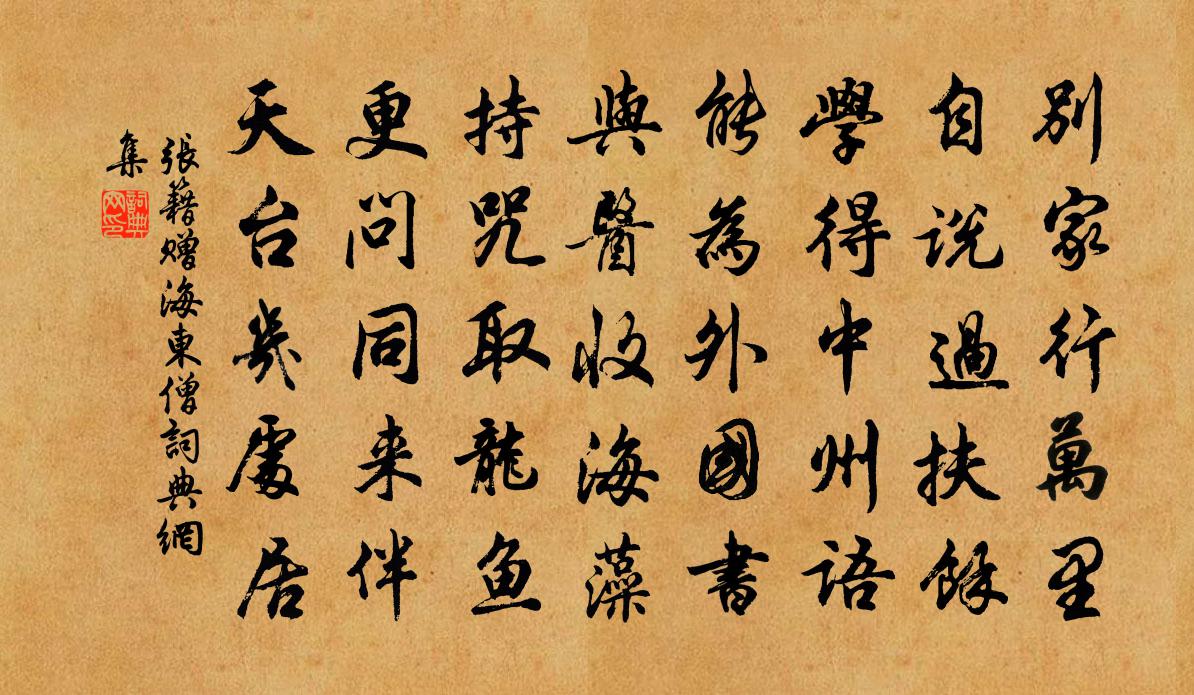 別家行萬里
自説過扶餘
學得中州語
能為外國書
與醫收海藻
持咒取龍鱼
更問同来伴
天台幾處居
張籍贈海東僧詞典網
集
詞典
网印